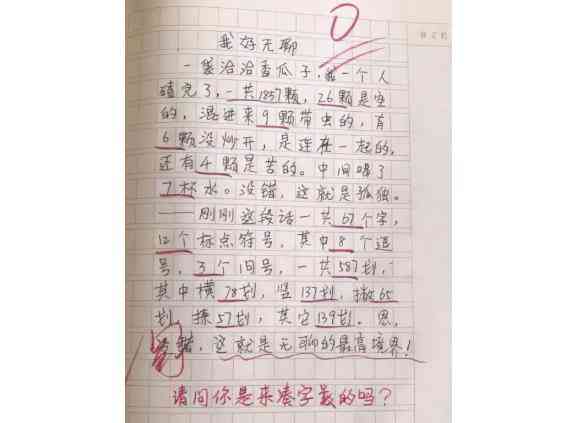 0
我好无聊
一袋洽洽香瓜子，我一个人
嗑完了，一共1857颗，26颗是空
的，混进来9颗带虫的，有
6颗没炒开，是连在一起的，
还有4颗是苦的。中间喝了
7杯水。没错，这就是孤独。
——刚刚这段话一共67个字，
12个标点符号，其中8个逗
号，3个句号，一共587划，
其中横78划，竖137划，撇65
划，捺57划，其它139划。恩，
没错，这就是无聊的最高境界！
请问你是来凑字数的吗？